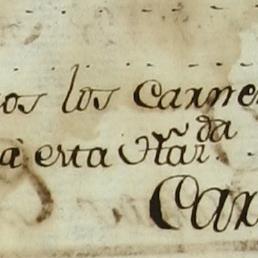 os los Carne
a esta Har.da
Car